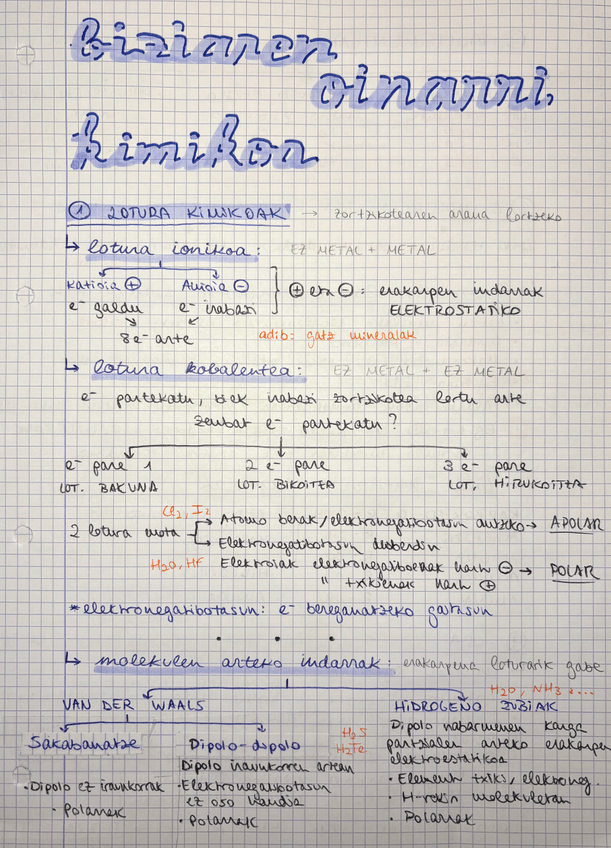 Bizianen
oinanni,
kimikoa
① LOTURA KIMIKOAK → zortzikotearen araua lortzeko
↳ lotura ionikoa: EZ METAL + METAL
Katioia ⊕ Anioia ⊖
⊕ eta ⊖: erakarpen indarrak
e⁻ galdu e⁻ irabazi
ELEKTROSTATIKO
8e⁻ arte
adib: gatz mineralak
↳ lotura kobalentea: EZ METAL + EZ METAL
e⁻ partekatu, biek irabazi zortzikotea lortu arte
zenbat e⁻ partekatu?
e⁻ pare 1 2 e⁻ pare 3 e⁻ pare
LOT. BAKUNA LOT. BIKOITZA LOT. HIRUKOITZA
Cl₂, I₂
2 lotura mota
Atomo berak/elektronegatibotasun antzeko → APOLAR
Elektronegatibotasun desberdin
H₂O, HF Elektroiak elektronegatiboenak hartu ⊖ → POLAR
" txikienak hartu ⊕
*elektronegatibotasun: e⁻ bereganatzeko gaitasun
• • •
↳ molekulen arteko indarrak: erakarpena loturarik gabe
H₂O, NH₃ ....
VAN DER WAALS HIDROGENO ZUBIAK
Sakabanatze
Dipolo ez iraunkorrak
• Polarrak
Dipolo-dipolo
Dipolo iraunkorren artean
• Elektronegatibotasun
ez oso handia
• Polarrak
H₂S
H₂Te
Dipolo nabarmenen karga
partzialen arteko erakarpen
elektroestatikoa
• Element txiki, elektroneg.
• H-rekin molekuletan
• Polarrak